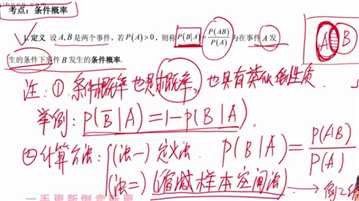 考点：条件概率
1.定义 设 A,B 是两个事件，若 P(A)>0，则称 P(B|A)=P(AB)/P(A) 为在事件 A 发
生的条件下事件 B 发生的条件概率.
A B
注：① 条件概率也是概率，也具有类似的性质.
举例：P(B̅|A)=1-P(B|A)
② 计算方法：(法一) 定义法. P(B|A)=P(AB)/P(A)
(法二) 缩减样本空间法 → 例2